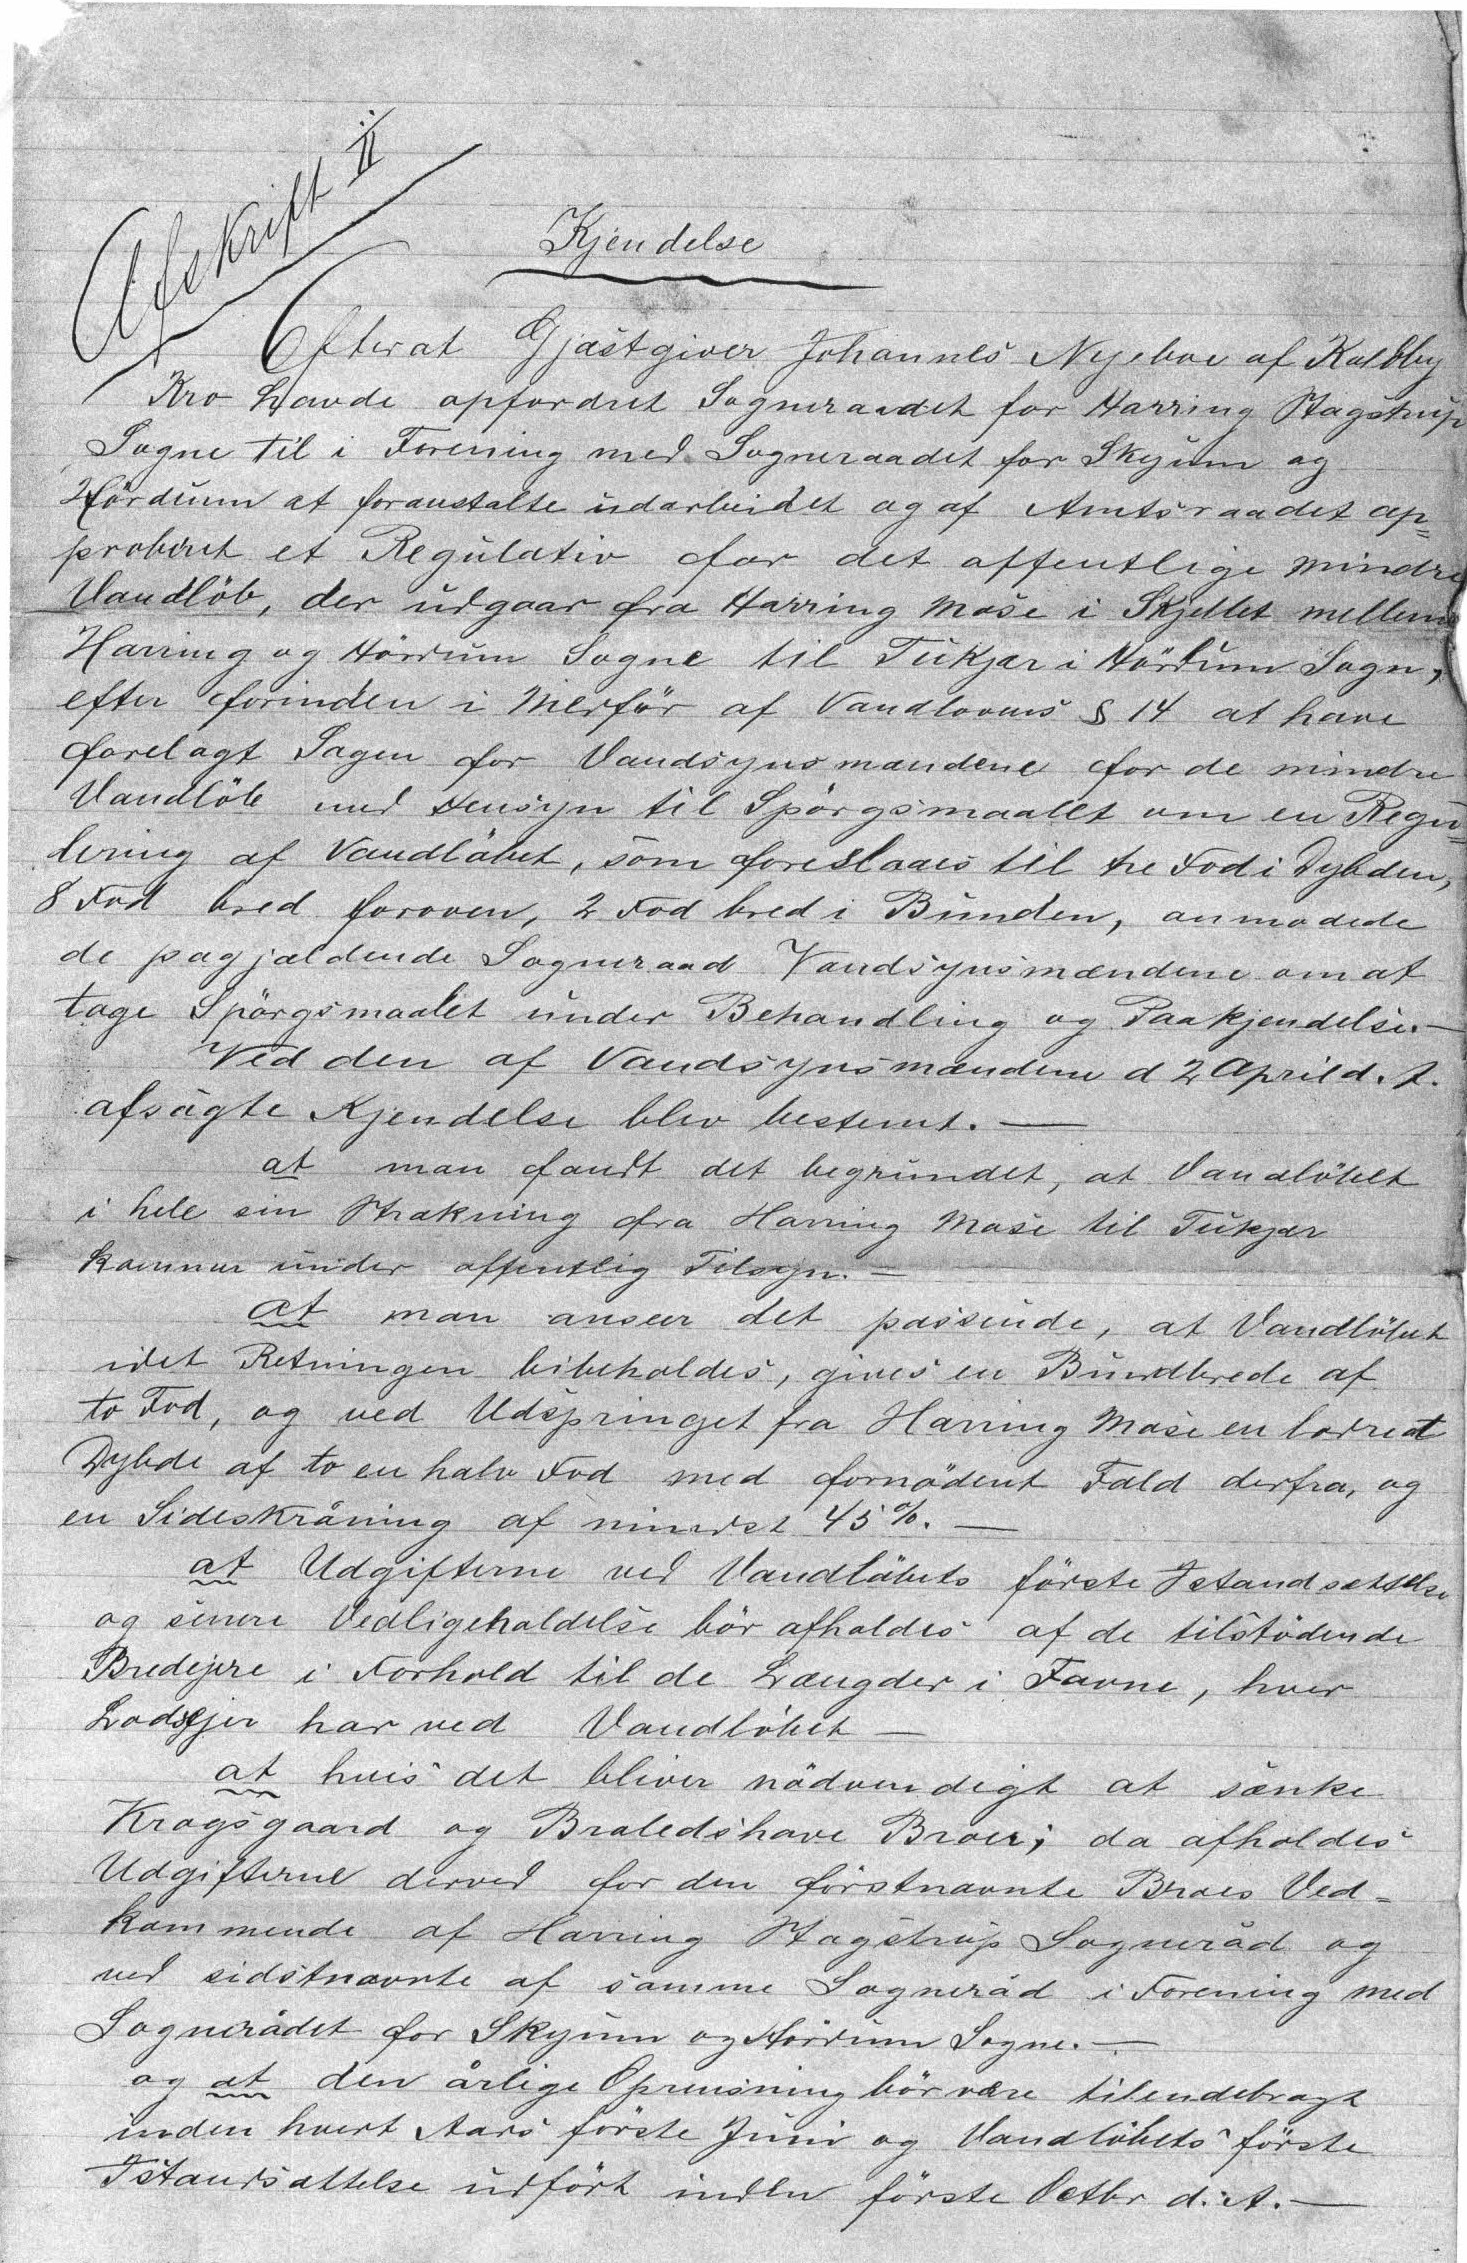 Afskrift II
Kjendelse
Efter at Gjæstgiver Johannes Nyeboe af Koldby
Kro havde opfordret Sogneraadet for Harring Stagstrup
Sogne til i Forening med Sogneraadet for Skyum og
Hördum at foranstalte udarbeidet og af Amtsraadet ap=
proberet et Regulativ for det offentlige mindre
Vandlöb, der udgaar fra Harring Mose i Skjellet mellem
Harring og Hördum Sogne til Tükjær i Hördum Sogn,
efter forinden i Medför af Vandlovens § 14 at have
forelagt Sagen for Vandsynsmændene for de mindre
Vandlöb med Hensyn til Spörgsmaalet om en Regu=
lering af Vandlöbet, som foreslaaes til tre Fod i Dybden,
8 Fod bred foroven, 2 Fod bred i Bunden, anmodede
de pagjældende Sogneraad Vandsynsmændene om at
tage Spörgsmaalet under Behandling og Paakjendelse.—
Ved den af Vandsynsmændene d 2 April d. A.
afsagte Kjendelse blev bestemt. —
at man fandt det begrundet, at Vandlöbet
i hele sin Strækning fra Harring Mose til Tükjær
kommer under offentlig Tilsyn. —
at man anseer det passende, at Vandlöbet
idet Retningen bibeholdes, gives en Bundbrede af
to Fod, og ved Udspringet fra Harring Mose en lodret
Dybde af to en halv Fod med fornödent Fald derfra, og
en Sideskråning af mindst 45 %. —
at Udgifterne ved Vandlöbets förste Istandsættelse
og senere Vedligeholdelse bör afholdes af de tilstödende
Bredejere i Forhold til de Længder i Favne, hver
Lodsejer har ved Vandlöbet —
at hvis det bliver nödvendigt at sænke
Krogsgaard og Broledshave Broer; da afholdes
Udgifterne derved for den förstnævnte Broes Ved=
kommende af Harring Stagstrup Sogneråd og
ved sidstnævnte af samme Sogneråd i Forening med
Sognerådet for Skyum og Hördum Sogne. —
og at den årlige Oprensning bör være tilendebragt
inden hvert Aars förste Juni og Vandlöbets förste
Istandsættelse udfört inden förste Octbr d. A. —